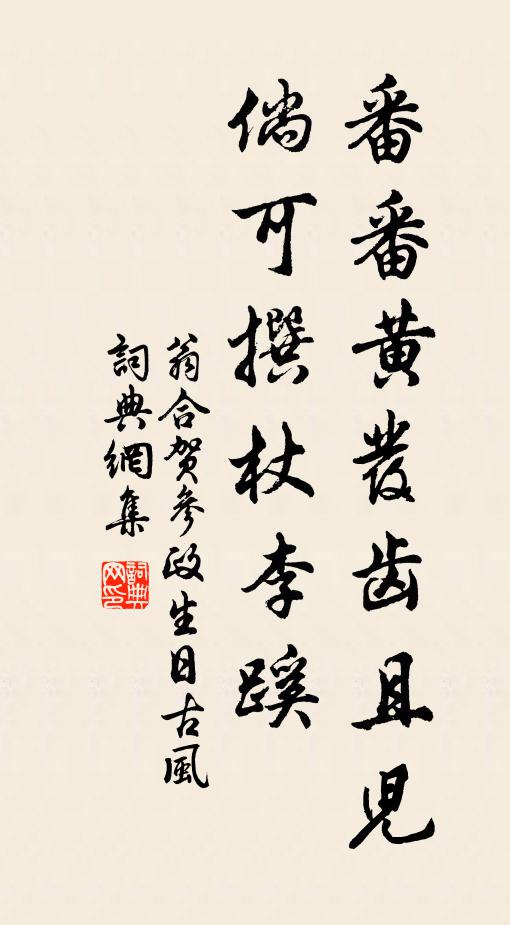 番番黄发齿且児
倘可撰杖李蹊
翁合贺參政生日古風
詞典網集
詞典网印